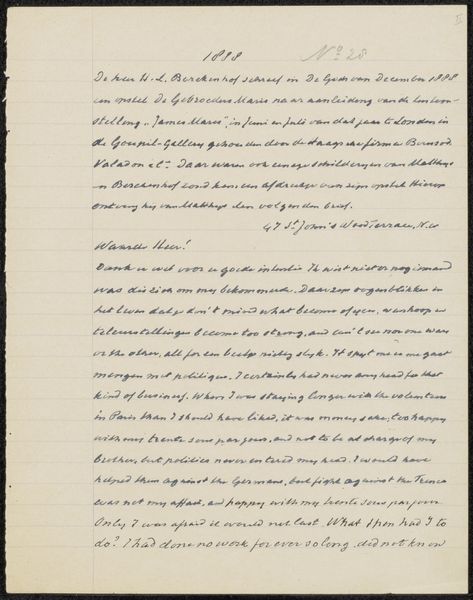 1888 No 28
De heer H. L. Berckenhoff schreef in De Gids van December 1888
een opstel De Gebroeders Maris naar aanleiding van de tentoon-
stelling "James Maris", in Juni en Juli van dat jaar te Londen in
de Goupil-Gallery gehouden door de Haagsche firma Boussod
Valadon & Co. Daar waren ook eenige schilderijen van Matthijs
en Berckenhoff zond hem een afdruk van zijn opstel Hierop
ontving hij van Matthijs den volgenden brief.
47 St. John's Wood Terrace, N.W
Waarde Heer!
Dank u wel voor uw goede intentie Ik wist niet er nog iemand
was die zich om mij bekommerde. Daar zijn oogenblikken in
het leven dat je don't mind what become of you, wanhoop en
teleurstellingen become too strong, and can't see non one ware
or the other, all for een beetje nietig slijk. It spijt me u me gaat
mengen met politique. I certainly had never any head for that
kind of business. When I was staying longer with the volunteers
in Paris than I should have liked, it was money sake, too happy
with our trente sous par jour, and not to be at charge of my
brother, but politics never entered my head. I would have
helped them against the Germans, but fight against the French
was not my affair, and happy with my trente sous par jour
Only I was afraid it would not last What then had I to
do? I had done no work for ever so long, did not know